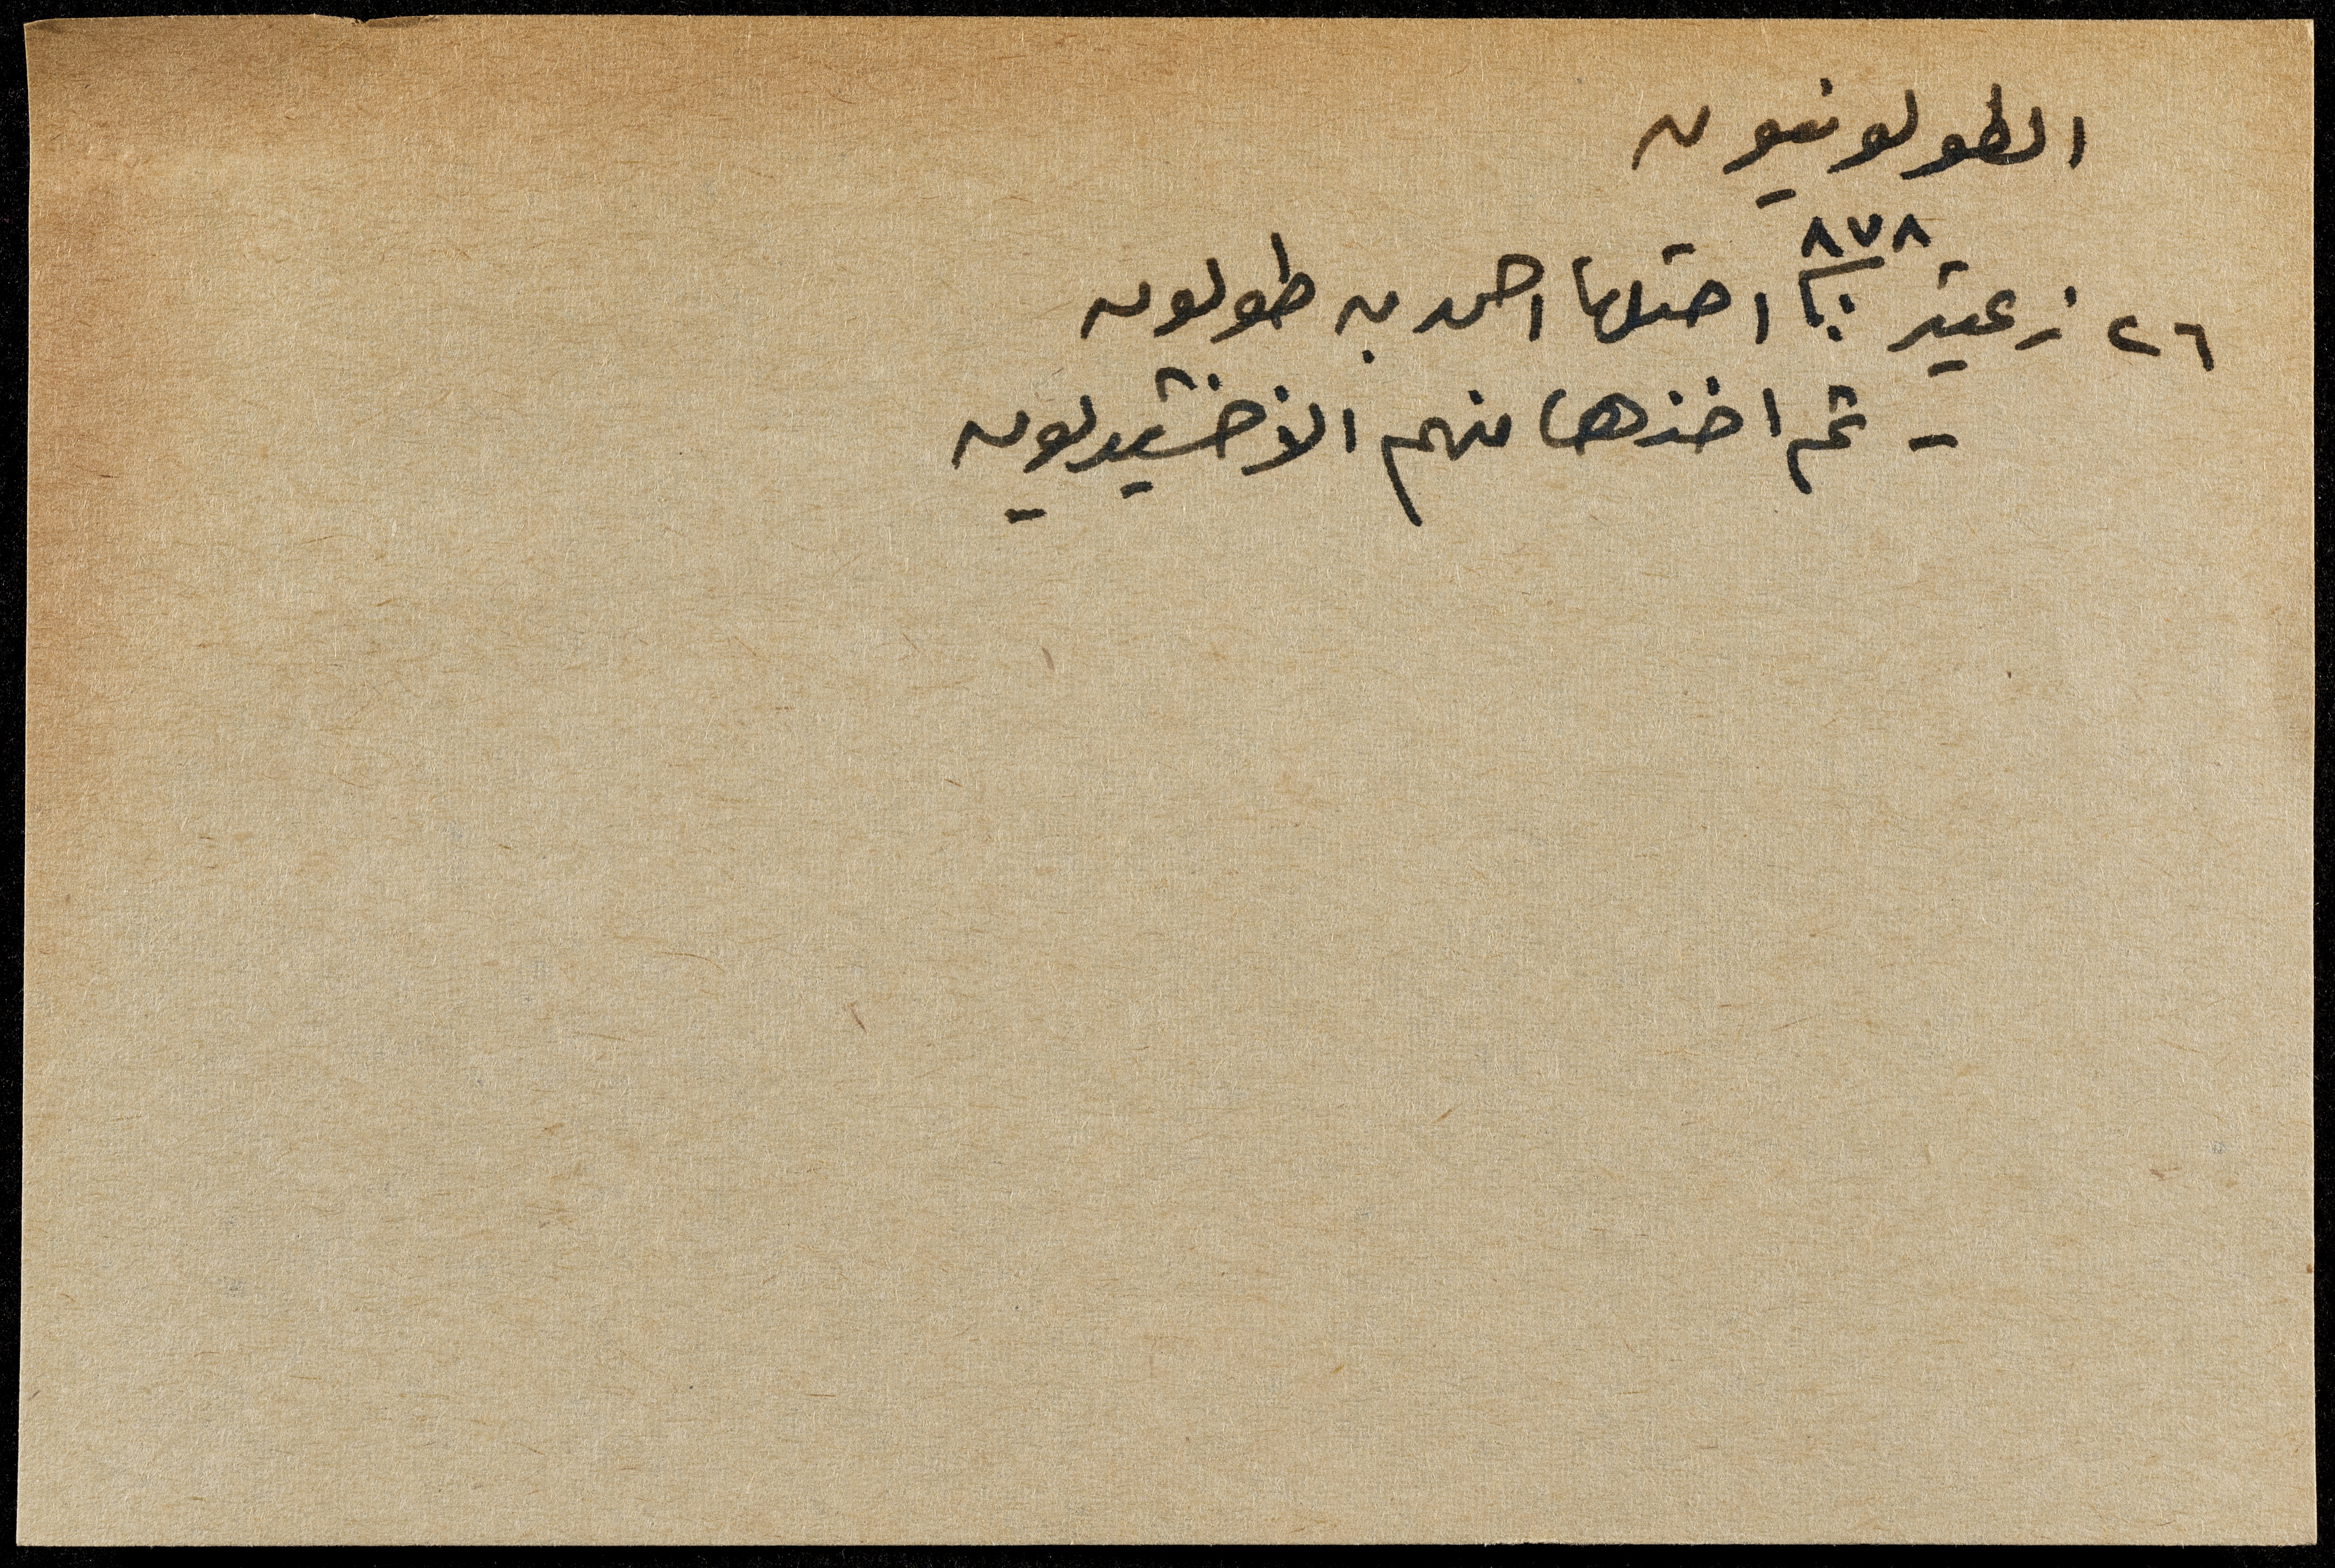 الطولونيون
٢٦ زعيتر ٨٧٨ احتلها احمد بن طولون
- ثم اخذها منهم الاخشيديون